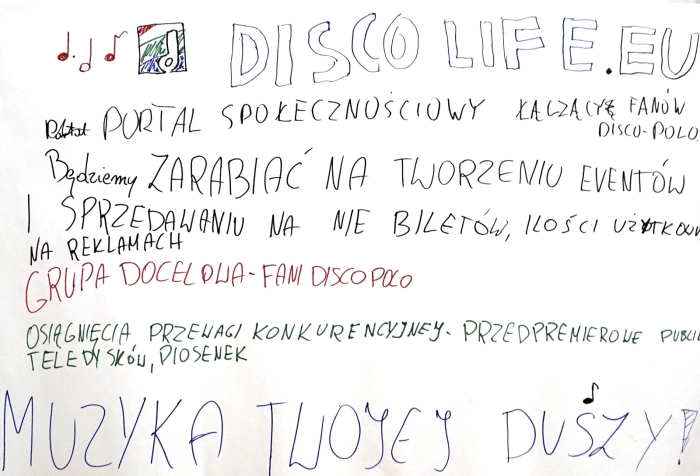 DISCO LIFE.EU
PORTAL SPOŁECZNOŚCIOWY ŁĄCZĄCY FANÓW
DISCO-POLO
Będziemy ZARABIAĆ NA TWORZENIU EVENTÓW
I SPRZEDAWANIU NA NIE BILETÓW, ILOŚCI
NA REKLAMACH
GRUPA DOCELOWA - FANI DISCO POLO
OSIĄGNIĘCIA PRZEWAGI KONKURENCYJNEJ - PRZEDPREMIEROWE
TELEDYSKÓW, PIOSENEK
MUZYKA TWOJEJ DUSZY!